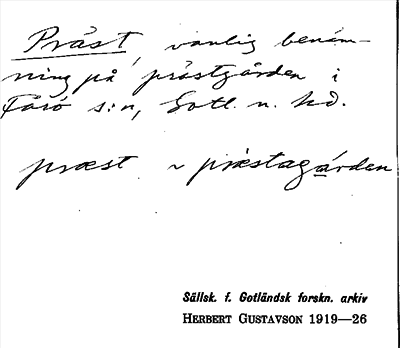 Präst, vanlig benäm-
ning på prästgården i
Fårö s:n, Gotl. n. hd.
præst ~ præstagården
Sällsk. f. Gotländsk forskn. arkiv
HERBERT GUSTAVSON 1919—26